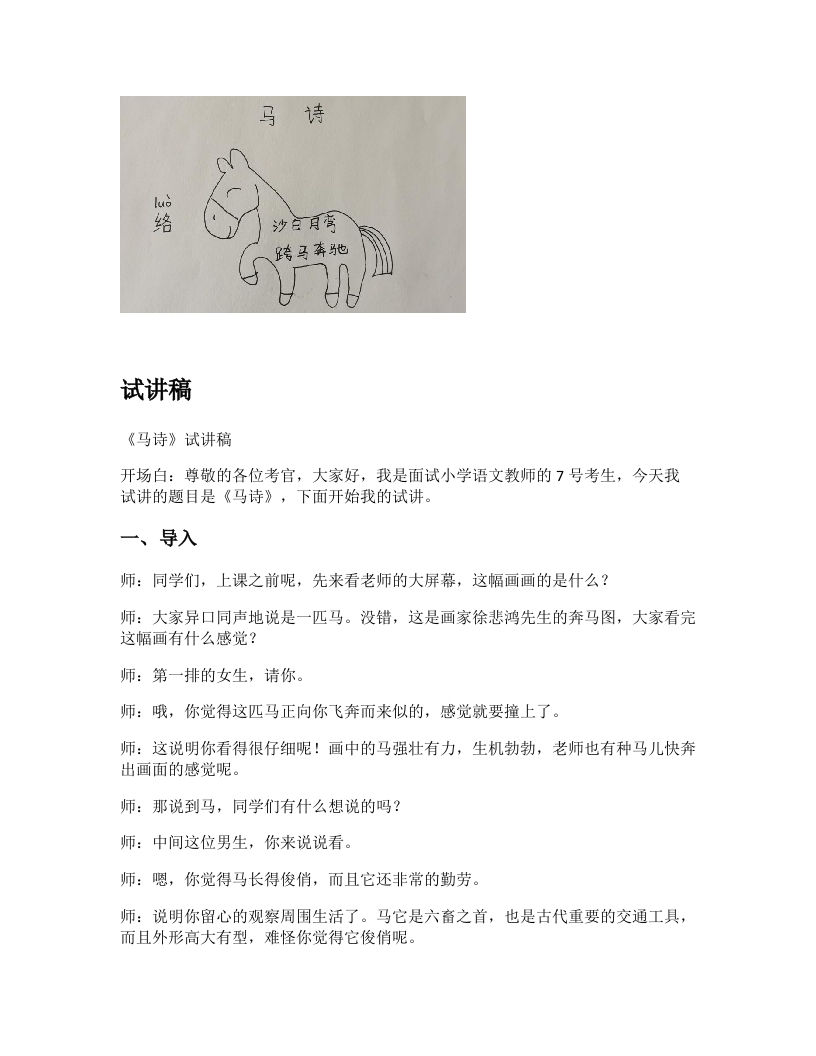 马 诗
luò
络
沙白月弯
跨马奔驰
试讲稿
《马诗》试讲稿
开场白：尊敬的各位考官，大家好，我是面试小学语文教师的 7 号考生，今天我
试讲的题目是《马诗》，下面开始我的试讲。
一、导入
师：同学们，上课之前呢，先来看老师的大屏幕，这幅画画的是什么？
师：大家异口同声地说是一匹马。没错，这是画家徐悲鸿先生的奔马图，大家看完
这幅画有什么感觉？
师：第一排的女生，请你。
师：哦，你觉得这匹马正向你飞奔而来似的，感觉就要撞上了。
师：这说明你看得很仔细呢！画中的马强壮有力，生机勃勃，老师也有种马儿快奔
出画面的感觉呢。
师：那说到马，同学们有什么想说的吗？
师：中间这位男生，你来说说看。
师：嗯，你觉得马长得俊俏，而且它还非常的勤劳。
师：说明你留心的观察周围生活了。马它是六畜之首，也是古代重要的交通工具，
而且外形高大有型，难怪你觉得它俊俏呢。